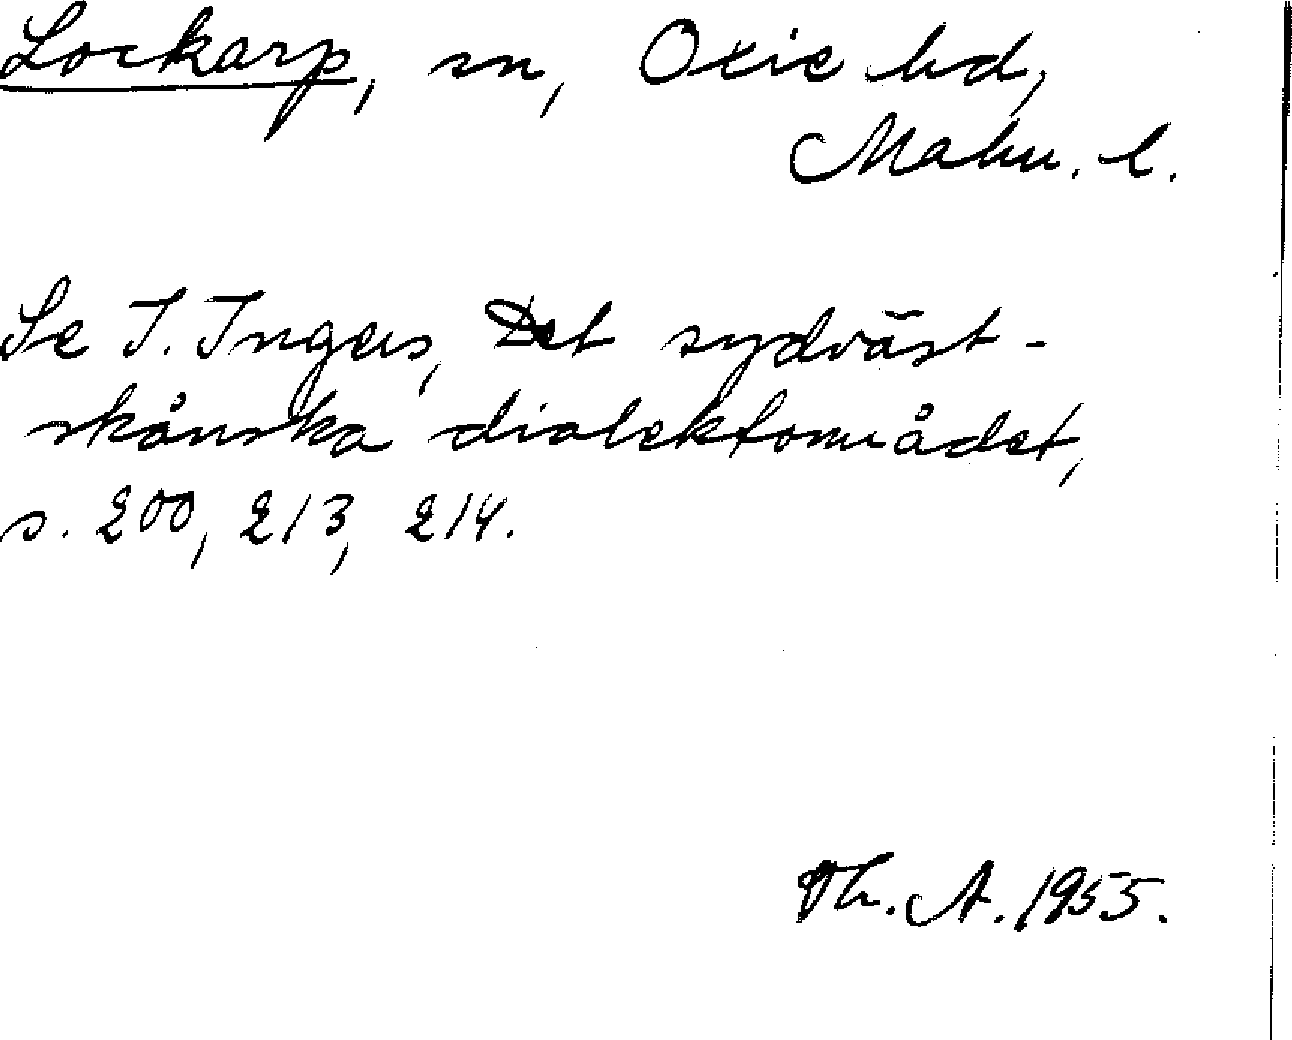 Lockarp, sn, Oxie hd,
Malm. l.
Se I. Ingers, Det sydväst-
skånska dialektområdet,
s. 200, 213, 214.
Th. A. 1955.